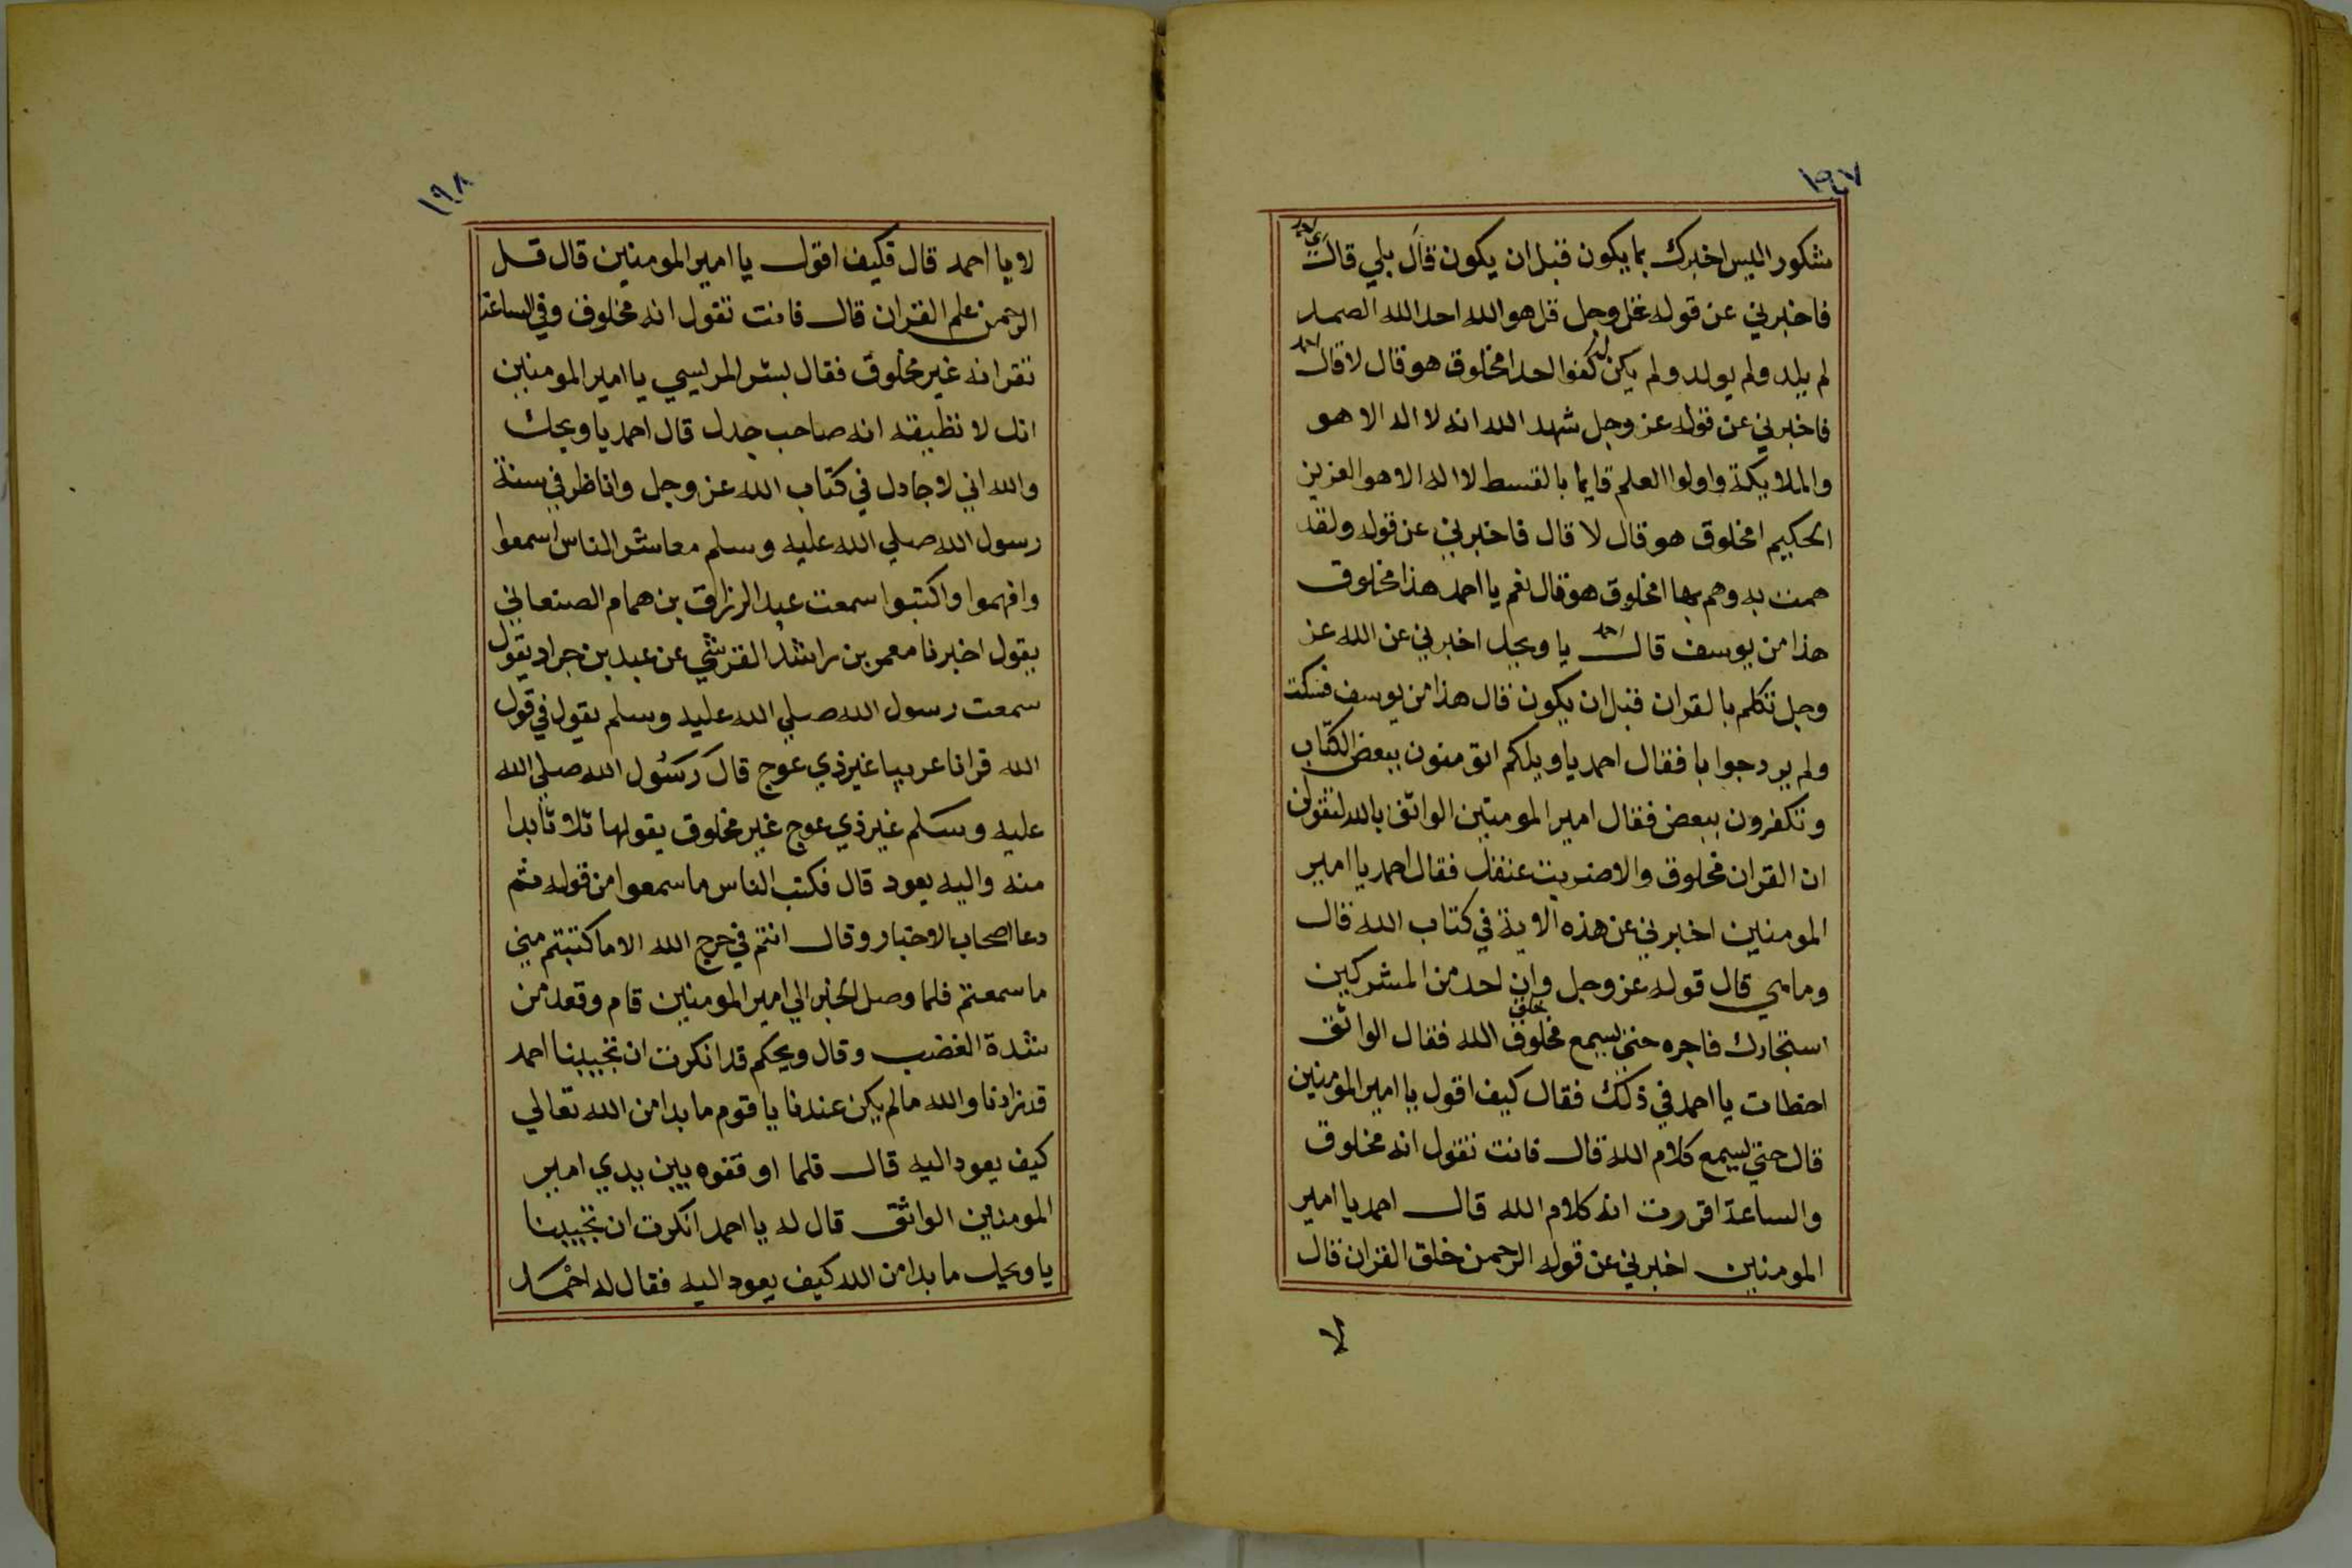 ١٩٧
مشكور اليس اخبرك بما يكون قبل ان يكون قال بلي قال
فاخبرني عن قوله عز وجل قل هو الله احد الله الصمد
لم يلد ولم يولد ولم يكن له كفوا احد امخلوق هو قال لا قال
فاخبرني عن قوله عز وجل شهد الله انه لا اله الا هو
والملايكة واولوا العلم قايما بالقسط لا اله الا هو العزيز
الحكيم امخلوق هو قال لا قال فاخبرني عن قوله ولقد
همت به وهم بها امخلوق هو قال نعم يا احمد هذا مخلوق
هذا من يوسف قال احمد يا ويحك اخبرني عن الله عز
وجل تكلم بالقران قبل ان يكون قال هذا من يوسف فسكت
ولم يرد جوابا فقال احمد يا ويلكم اتومنون ببعض الكتاب
وتكفرون ببعض فقال امير المومنين الواثق بالله لتقولن
ان القران مخلوق والا ضربت عنقك فقال احمد يا امير
المومنين اخبرني عن هذه الاية في كتاب الله قال
وما هي قال قوله عز وجل وان احد من المشركين
استجارك فاجره حتي يسمع مخلوق الله فقال الواثق
اخطات يا احمد في ذلك فقال كيف اقول يا امير المومنين
قال حتي يسمع كلام الله قال فانت تقول انه مخلوق
والساعة اقررت انه كلام الله قال احمد يا امير
المومنين اخبرني عن قوله الرحمن خلق القران قال
لا
١٩٨
لا يا احمد قال فكيف اقول يا امير المومنين قال قل
الرحمن علم القران قال فانت تقول انه مخلوق وفي الساعة
تقر انه غير مخلوق فقال بشر المريسي يا امير المومنين
انك لا تطيقه انه صاحب جدل قال احمد يا ويحك
والله اني لاجادل في كتاب الله عز وجل واناظر في سنة
رسول الله صلي الله عليه وسلم معاشر الناس اسمعوا
وافهموا واكتبوا سمعت عبد الرزاق بن همام الصنعاني
يقول اخبرنا معمر بن راشد القرشي عن عبد بن جراد يقول
سمعت رسول الله صلي الله عليه وسلم يقول في قول
الله قرانا عربيا غير ذي عوج قال رسول الله صلي الله
عليه وسلم غير ذي عوج غير مخلوق يقولها ثلاثا بدا
منه واليه يعود قال فكتب الناس ما سمعوا من قوله ثم
دعا اصحاب الاخبار وقال انتم في حرج الله الا ما كتبتم مني
ما سمعتم فلما وصل الخبر الي امير المومنين قام وقعد من
شدة الغضب وقال ويحكم قد انكرت ان تجيبنا احمد
قد زادنا والله ما لم يكن عندنا يا قوم ما بدا من الله تعالي
كيف يعود اليه قال فلما اوقفوه بين يدي امير
المومنين الواثق قال له يا احمد انكرت ان تجيبنا
يا ويحك ما بدا من الله كيف يعود اليه فقال له احمد